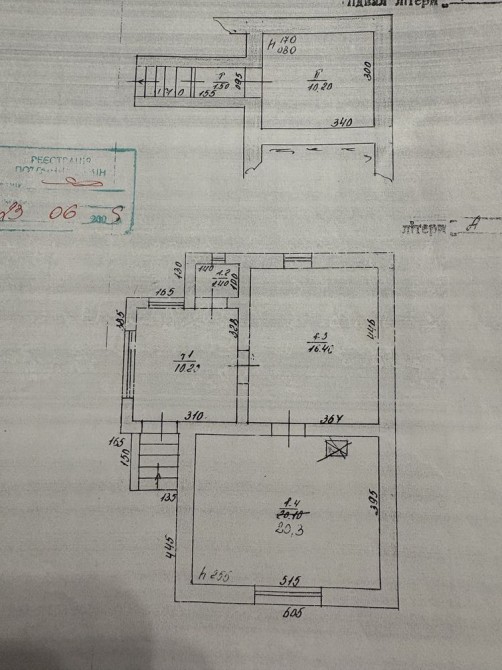 Підвал літери
h 170
080
I
1.50
095
155
170
II
10.20
300
340
РЕЄСТРАЦІЯ
23 06 200 5
літера А
130
140
1.2
1.40
100
165
135
328
1.3
16.40
446
1.1
10.20
310
367
165
150
135
1.4
20.10
20,3
395
445
h 255
515
605